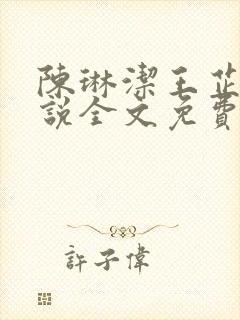 陳琳潔王芷
說全文免費
許子偉